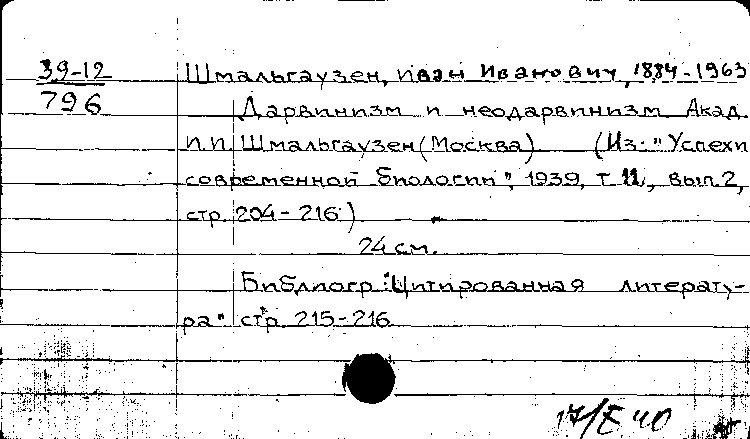 39-12
796
Шмальгаузен, Иван Иванович, 1884-1963
Дарвинизм и неодарвинизм Акад.
И.И. Шмальгаузен (Москва) (Из: "Успехи
современной биологии", 1939, т. 11, вып. 2,
стр. 204-216)
24 см.
Библиогр: "Цитированная литерату-
ра" стр. 215-216
17/Е 40